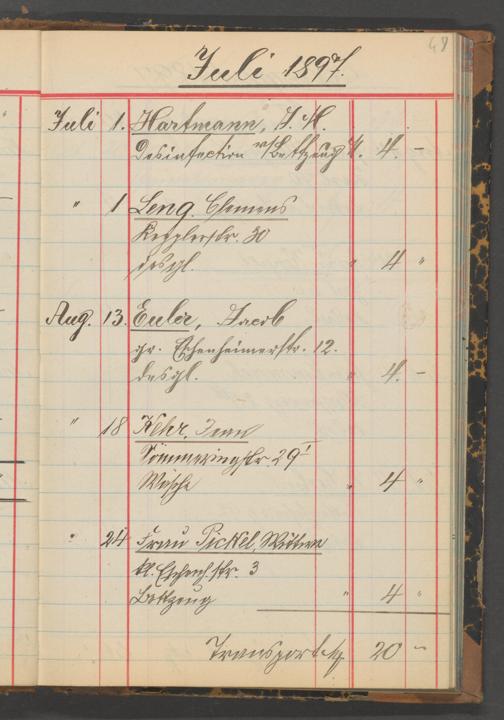 48
Juli 1897.
Juli 1. Hartmann, J. H.
Desinfection v/Bettzeug M. 4. –
" 1 Leng. Clemens
Kepplerstr. 30
desgl. " 4 "
Aug. 13. Euler, Jacob
gr. Eschenheimerstr. 12.
desgl. " 4. –
" 18 Kehr, Jean
Sömmeringstr 29 I
Wäsche " 4 "
" 24 Frau Pickel, Wittwe
kl. Eschenh. str. 3
Bettzeug " 4 "
Transport M. 20 –